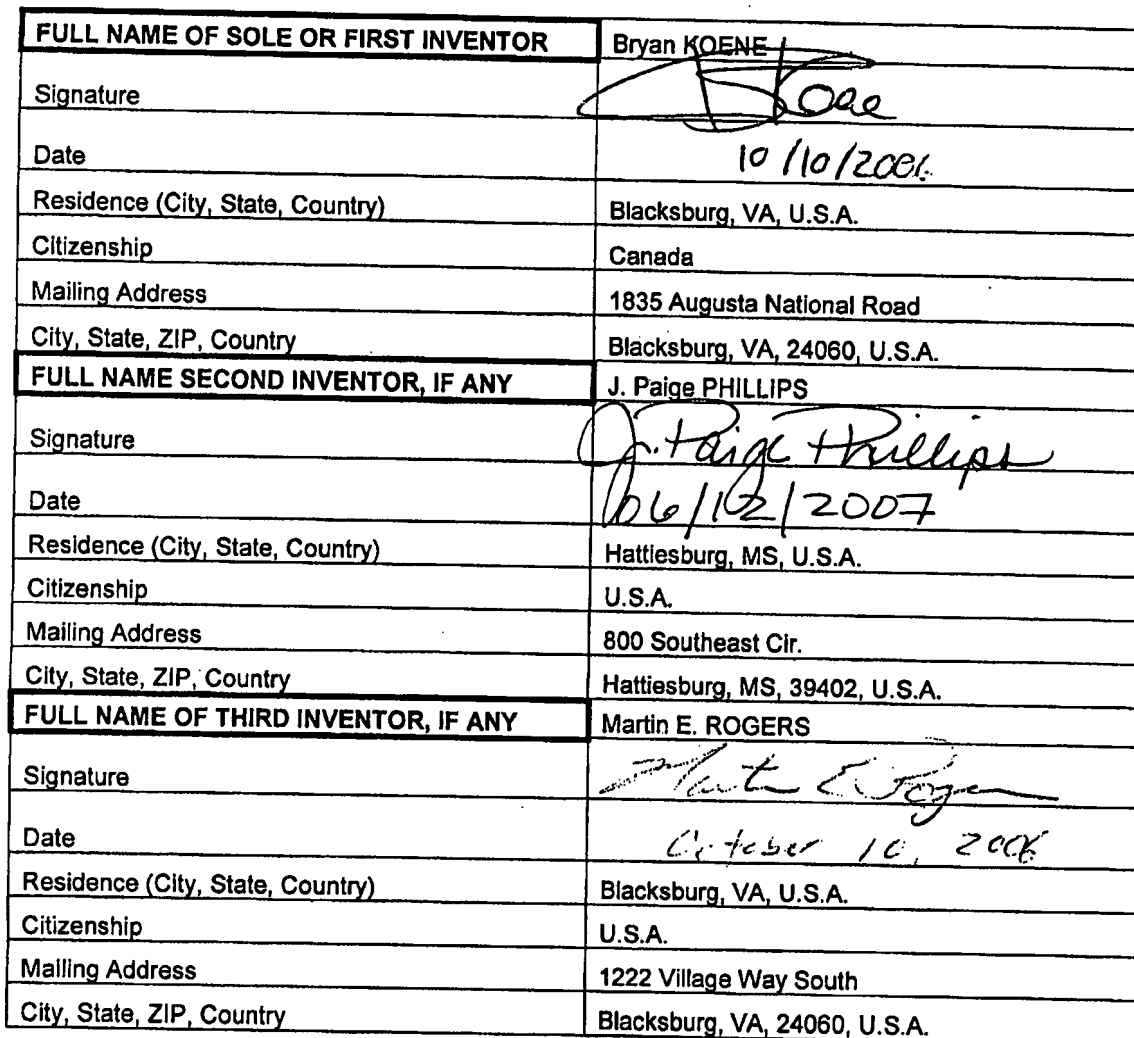 FULL NAME OF SOLE OR FIRST INVENTOR Bryan KOENE
Signature BKoene
Date 10/10/2006
Residence (City, State, Country) Blacksburg, VA, U.S.A.
Citizenship Canada
Mailing Address 1835 Augusta National Road
City, State, ZIP, Country Blacksburg, VA, 24060, U.S.A.
FULL NAME SECOND INVENTOR, IF ANY J. Paige PHILLIPS
Signature J. Paige Phillips
Date 06/12/2007
Residence (City, State, Country) Hattiesburg, MS, U.S.A.
Citizenship U.S.A.
Mailing Address 800 Southeast Cir.
City, State, ZIP, Country Hattiesburg, MS, 39402, U.S.A.
FULL NAME OF THIRD INVENTOR, IF ANY Martin E. ROGERS
Signature Martin E Rogers
Date October 10, 2006
Residence (City, State, Country) Blacksburg, VA, U.S.A.
Citizenship U.S.A.
Mailing Address 1222 Village Way South
City, State, ZIP, Country Blacksburg, VA, 24060, U.S.A.